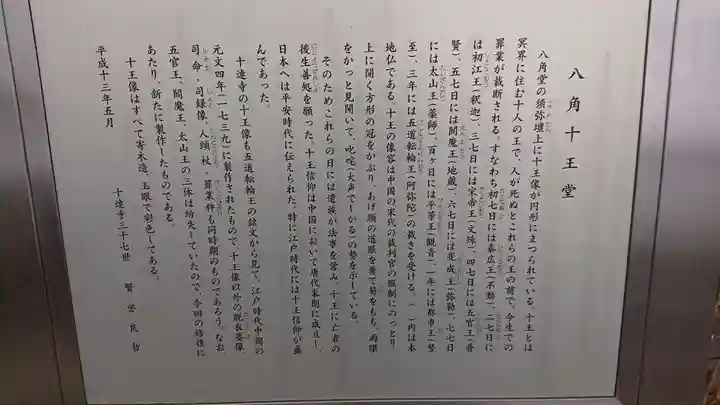 八角十王堂
八角堂の須弥壇上に十王像が円形にまつられている。十王とは
冥界に住む十人の王で、人が死ぬとこれらの王の前で、今生での
罪業が裁断される。すなわち初七日には秦広王(不動)、二七日に
は初江王(釈迦)、三七日には宋帝王(文殊)、四七日には五官王(普
賢)、五七日には閻魔王(地蔵)、六七日には変成王(弥勒)、七七日
には太山王(薬師)、百ヶ日には平等王(観音)、一年には都市王(勢
至)、三年には五道転輪王(阿弥陀)の裁きを受ける。( )内は本
地仏である。十王の像容は中国の宋代の裁判官の服制にのっとり
上に開く方形の冠をかぶり、あげ頸の道服を着て笏をもち、両眼
をかっと見開いて、叱咤(大声でしかる)の勢を示している。
そのためこれらの日には遺族が法事を営み、十王に亡者の
後生善処を願った。十王信仰は中国において唐代末期に成立し、
日本へは平安時代に伝えられた。特に江戸時代には十王信仰が盛
んであった。
十達寺の十王像も五道転輪王の銘文から見て、江戸時代中期の
元文四年(一七三九)に製作されたもので、十王像以外の脱衣婆像
司命・司録像、人頭杖、罪業秤も同時期のものであろう。なお
五官王、閻魔王、太山王の三体は紛失していたので、今回の修復に
あたり、新たに製作したものである。
十王像はすべて寄木造、玉眼で彩色してある。
平成十三年五月
十達寺三十七世 良哲